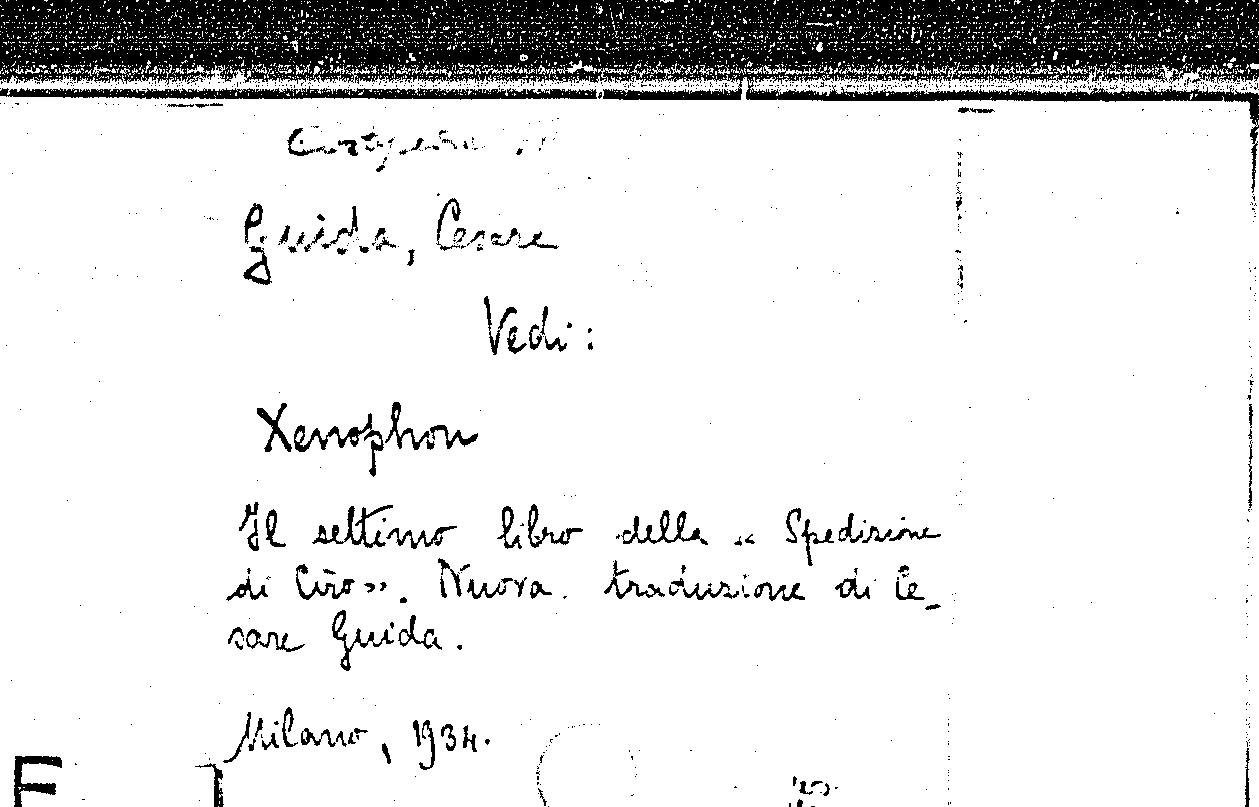 Guida, Cesare
Vedi:
Xenophon
Il settimo libro della « Spedizione
di Ciro ». Nuova traduzione di Ce_
sare Guida.
Milano, 1934.
E